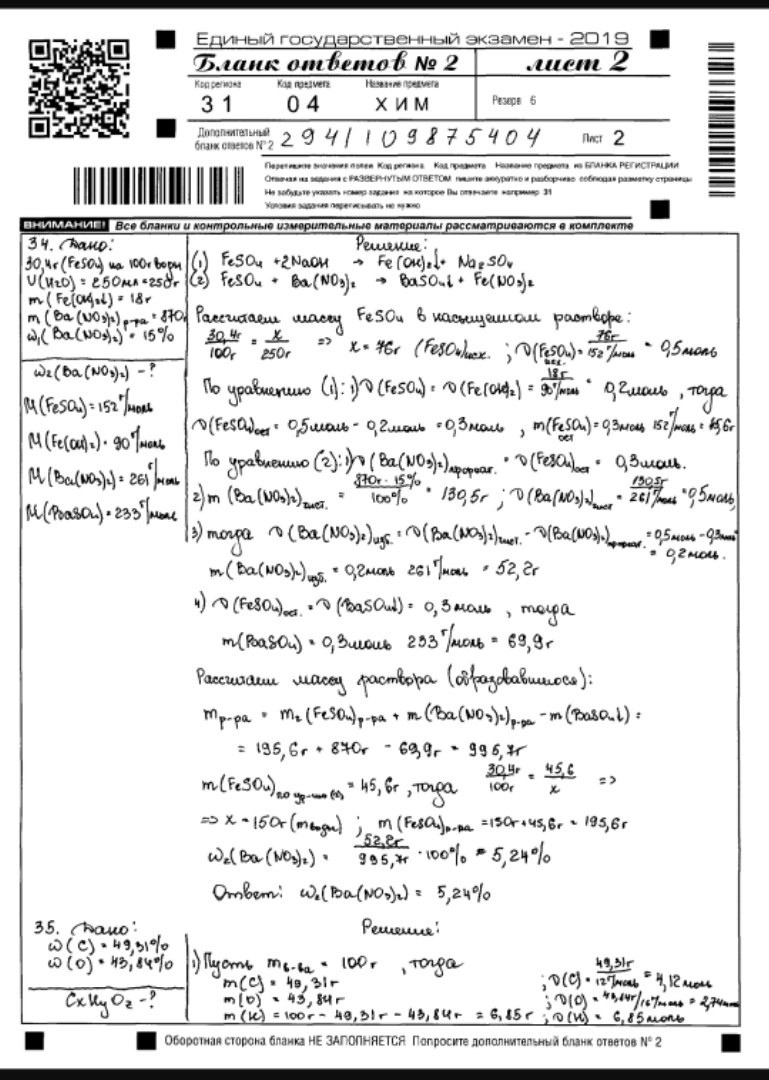 Единый государственный экзамен - 2019
Бланк ответов № 2 лист 2
Код региона Код предмета Название предмета
31 04 ХИМ Резерв 6
Дополнительный бланк ответов № 2 2941109875404 Лист 2
Перепишите значения полей Код региона Код предмета Название предмета из БЛАНКА РЕГИСТРАЦИИ
Отвечая на задания с РАЗВЕРНУТЫМ ОТВЕТОМ пишите аккуратно и разборчиво соблюдая разметку страницы
Не забудьте указать номер задания на которое Вы отвечаете например 31
Условия задания переписывать не нужно
ВНИМАНИЕ! Все бланки и контрольные измерительные материалы рассматриваются в комплекте
34. Дано:
30,4г (FeSO₄) на 100г воды
V(H₂O) = 250мл = 250г
m(Fe(OH)₂↓) = 18г
m(Ba(NO₃)₂)р-ра = 870г
ω₁(Ba(NO₃)₂) = 15%
ω₂(Ba(NO₃)₂) - ?
M(FeSO₄) = 152 г/моль
M(Fe(OH)₂) = 90 г/моль
M(Ba(NO₃)₂) = 261 г/моль
M(BaSO₄) = 233 г/моль
Решение:
(1) FeSO₄ + 2NaOH → Fe(OH)₂↓ + Na₂SO₄
(2) FeSO₄ + Ba(NO₃)₂ → BaSO₄↓ + Fe(NO₃)₂
Рассчитаем массу FeSO₄ в насыщенном растворе:
30,4г/100г = x/250г => x = 76г (FeSO₄)исх. ; ν(FeSO₄)исх. = 76г/152 г/моль = 0,5моль
По уравнению (1): 1) ν(FeSO₄) = ν(Fe(OH)₂) = 18г/90 г/моль = 0,2моль , тогда
ν(FeSO₄)ост = 0,5моль - 0,2моль = 0,3моль , m(FeSO₄)ост = 0,3моль 152 г/моль = 45,6г
По уравнению (2): 1) ν(Ba(NO₃)₂)прореаг. = ν(FeSO₄)ост = 0,3моль.
2) m(Ba(NO₃)₂)чист. = 870г · 15%/100% = 130,5г ; ν(Ba(NO₃)₂)чист = 130,5г/261 г/моль = 0,5моль,
3) тогда ν(Ba(NO₃)₂)изб. = ν(Ba(NO₃)₂)чист. - ν(Ba(NO₃)₂)прореаг. = 0,5моль - 0,3моль = 0,2моль.
m(Ba(NO₃)₂)изб. = 0,2моль 261 г/моль = 52,2г
4) ν(FeSO₄)ост. = ν(BaSO₄↓) = 0,3моль , тогда
m(BaSO₄) = 0,3моль 233 г/моль = 69,9г
Рассчитаем массу раствора (образовавшегося):
mр-ра = m₂(FeSO₄)р-ра + m(Ba(NO₃)₂)р-ра - m(BaSO₄↓) =
= 195,6г + 870г - 69,9г = 995,7г
m(FeSO₄)по ур-нию (2) = 45,6г , тогда 30,4г/100г = 45,6/x =>
=> x = 150г (mводы) ; m(FeSO₄)р-ра = 150г + 45,6г = 195,6г
ω₂(Ba(NO₃)₂) = 52,2г/995,7г · 100% = 5,24%
Ответ: ω₂(Ba(NO₃)₂) = 5,24%
35. Дано:
ω(C) = 49,31%
ω(O) = 43,84%
CxHyOz - ?
Решение:
1) Пусть mв-ва = 100г , тогда
m(C) = 49,31г ; ν(C) = 49,31г/12 г/моль = 4,12моль
m(O) = 43,84г ; ν(O) = 43,84г/16 г/моль = 2,74моль
m(H) = 100г - 49,31г - 43,84г = 6,85г ; ν(H) = 6,85моль
Оборотная сторона бланка НЕ ЗАПОЛНЯЕТСЯ Попросите дополнительный бланк ответов № 2